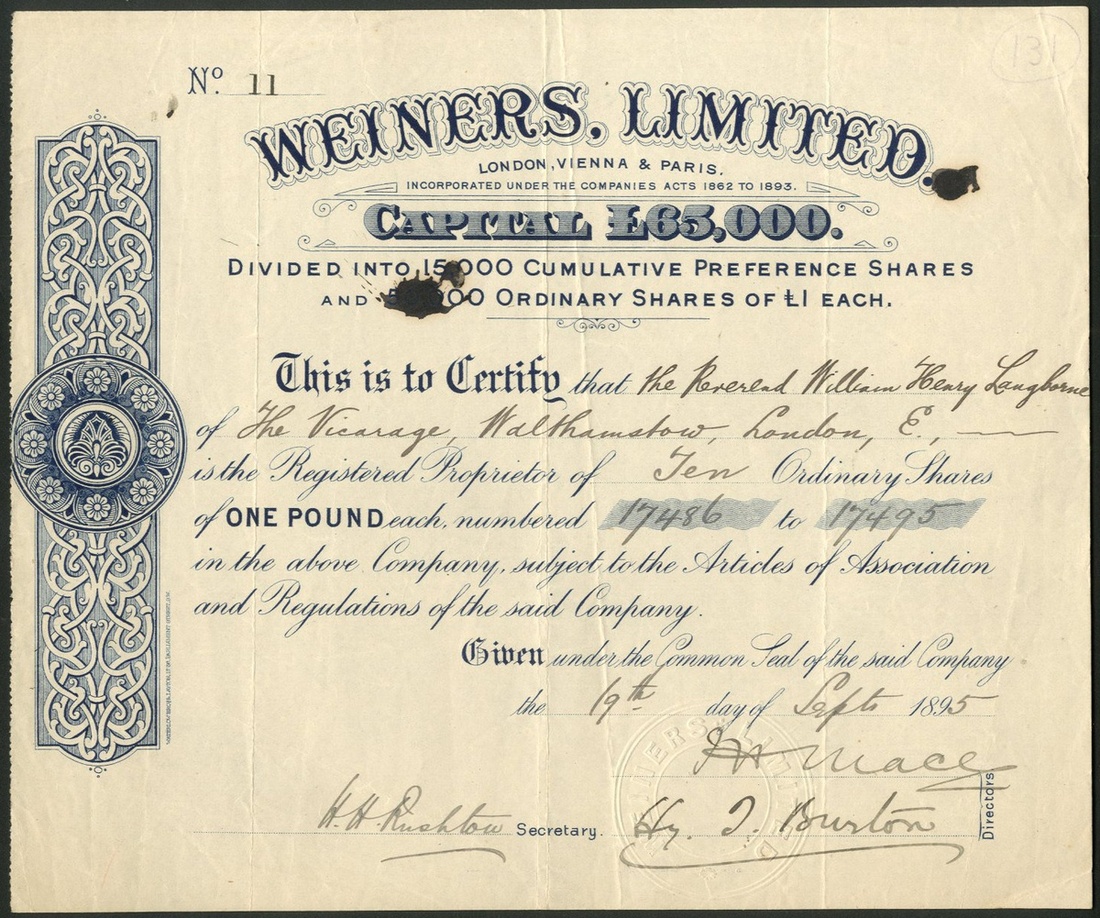 131
No. 11
WEINERS, LIMITED.
LONDON, VIENNA & PARIS.
INCORPORATED UNDER THE COMPANIES ACTS 1862 TO 1893.
CAPITAL £65,000.
DIVIDED INTO 15,000 CUMULATIVE PREFERENCE SHARES
AND 000 ORDINARY SHARES OF £1 EACH.
This is to Certify that the Reverend William Henry Langhorne
of The Vicarage, Walthamstow, London, E.,
is the Registered Proprietor of Ten Ordinary Shares
of ONE POUND each, numbered 17486 to 17495
in the above Company, subject to the Articles of Association
and Regulations of the said Company.
Given under the Common Seal of the said Company
the 19th day of Septr 1895
Mace
H. H. Rushton Secretary. Hy. J. Burton
Directors
WEINERS LIMITED